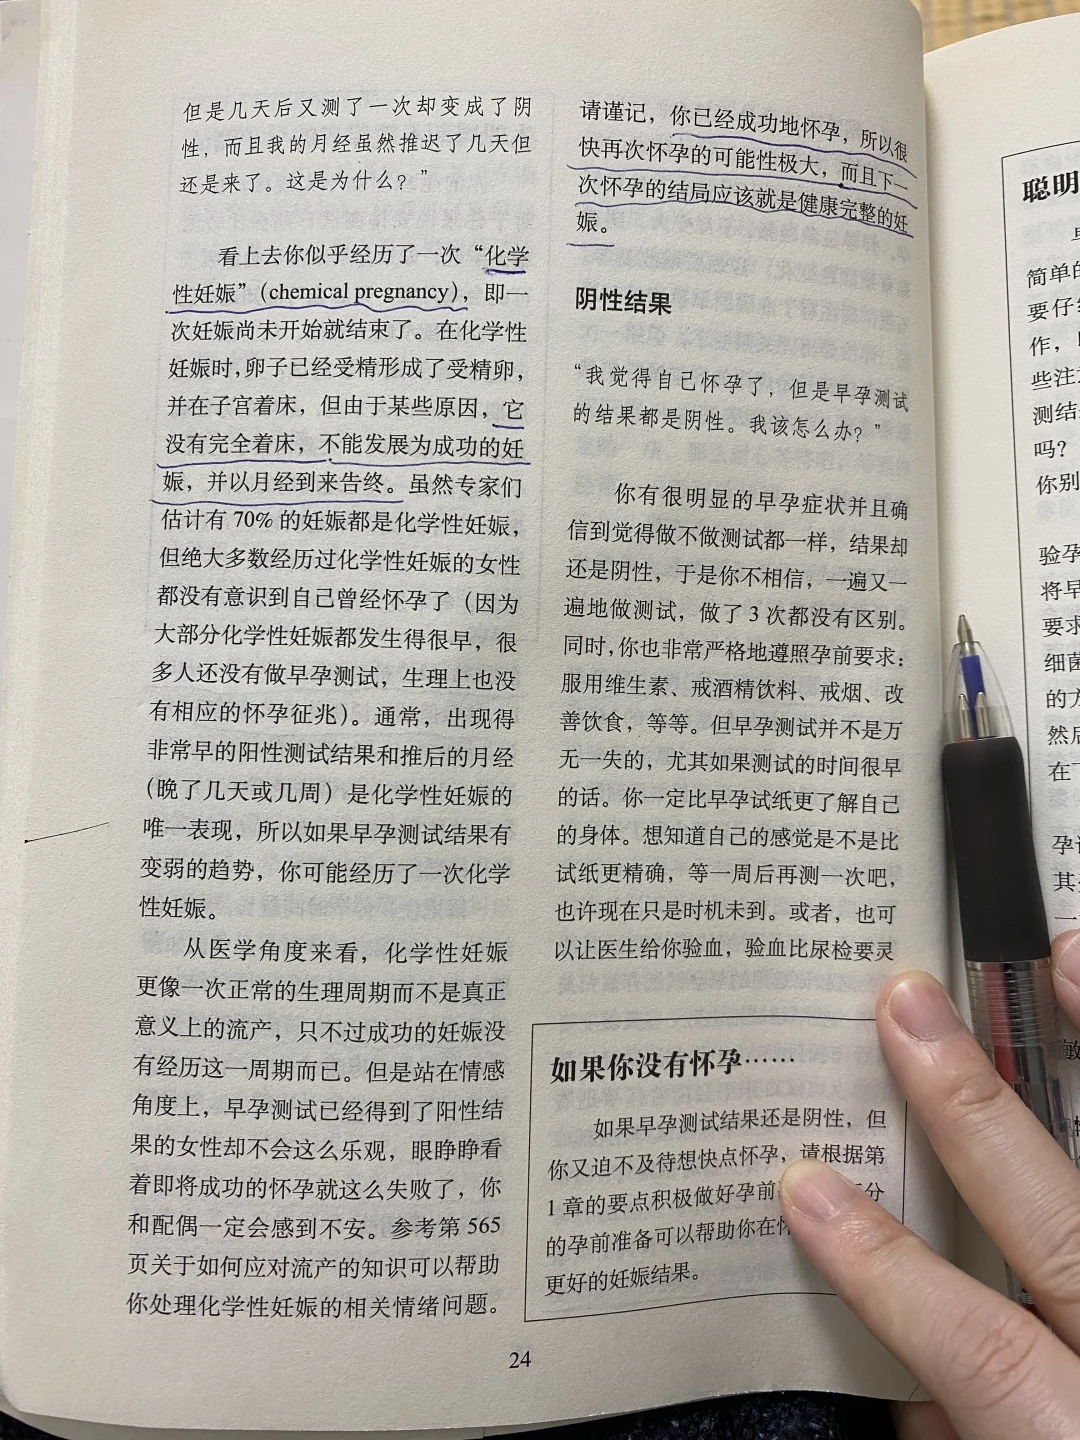 但是几天后又测了一次却变成了阴
性，而且我的月经虽然推迟了几天但
还是来了。这是为什么？”
看上去你似乎经历了一次“化学
性妊娠”（chemical pregnancy），即一
次妊娠尚未开始就结束了。在化学性
妊娠时，卵子已经受精形成了受精卵，
并在子宫着床，但由于某些原因，它
没有完全着床，不能发展为成功的妊
娠，并以月经到来告终。虽然专家们
估计有 70% 的妊娠都是化学性妊娠，
但绝大多数经历过化学性妊娠的女性
都没有意识到自己曾经怀孕了（因为
大部分化学性妊娠都发生得很早，很
多人还没有做早孕测试，生理上也没
有相应的怀孕征兆）。通常，出现得
非常早的阳性测试结果和推后的月经
（晚了几天或几周）是化学性妊娠的
唯一表现，所以如果早孕测试结果有
变弱的趋势，你可能经历了一次化学
性妊娠。
从医学角度来看，化学性妊娠
更像一次正常的生理周期而不是真正
意义上的流产，只不过成功的妊娠没
有经历这一周期而已。但是站在情感
角度上，早孕测试已经得到了阳性结
果的女性却不会这么乐观，眼睁睁看
着即将成功的怀孕就这么失败了，你
和配偶一定会感到不安。参考第 565
页关于如何应对流产的知识可以帮助
你处理化学性妊娠的相关情绪问题。
请谨记，你已经成功地怀孕，所以很
快再次怀孕的可能性极大，而且下一
次怀孕的结局应该就是健康完整的妊
娠。
阴性结果
“我觉得自己怀孕了，但是早孕测试
的结果都是阴性。我该怎么办？”
你有很明显的早孕症状并且确
信到觉得做不做测试都一样，结果却
还是阴性，于是你不相信，一遍又一
遍地做测试，做了 3 次都没有区别。
同时，你也非常严格地遵照孕前要求：
服用维生素、戒酒精饮料、戒烟、改
善饮食，等等。但早孕测试并不是万
无一失的，尤其如果测试的时间很早
的话。你一定比早孕试纸更了解自己
的身体。想知道自己的感觉是不是比
试纸更精确，等一周后再测一次吧，
也许现在只是时机未到。或者，也可
以让医生给你验血，验血比尿检要灵
如果你没有怀孕……
如果早孕测试结果还是阴性，但
你又迫不及待想快点怀孕，请根据第
1 章的要点积极做好孕前
分
的孕前准备可以帮助你在怀
更好的妊娠结果。
24
聪明
简单的
要仔细
作，
些注
测结
吗？
你别
验孕
将早
要求
细菌
的方
然后
在
孕
其
一
敏